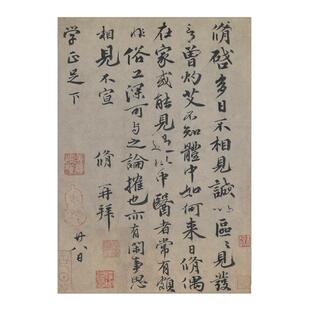 脩啓多日不相見誠以區〻見發
言曾灼艾不知體中如何來日脩偶
在家或能見過此中醫者常有頗
非俗工深可与之論榷也亦有閑事思
相見不宣 脩再拜
学正足下 廿八日